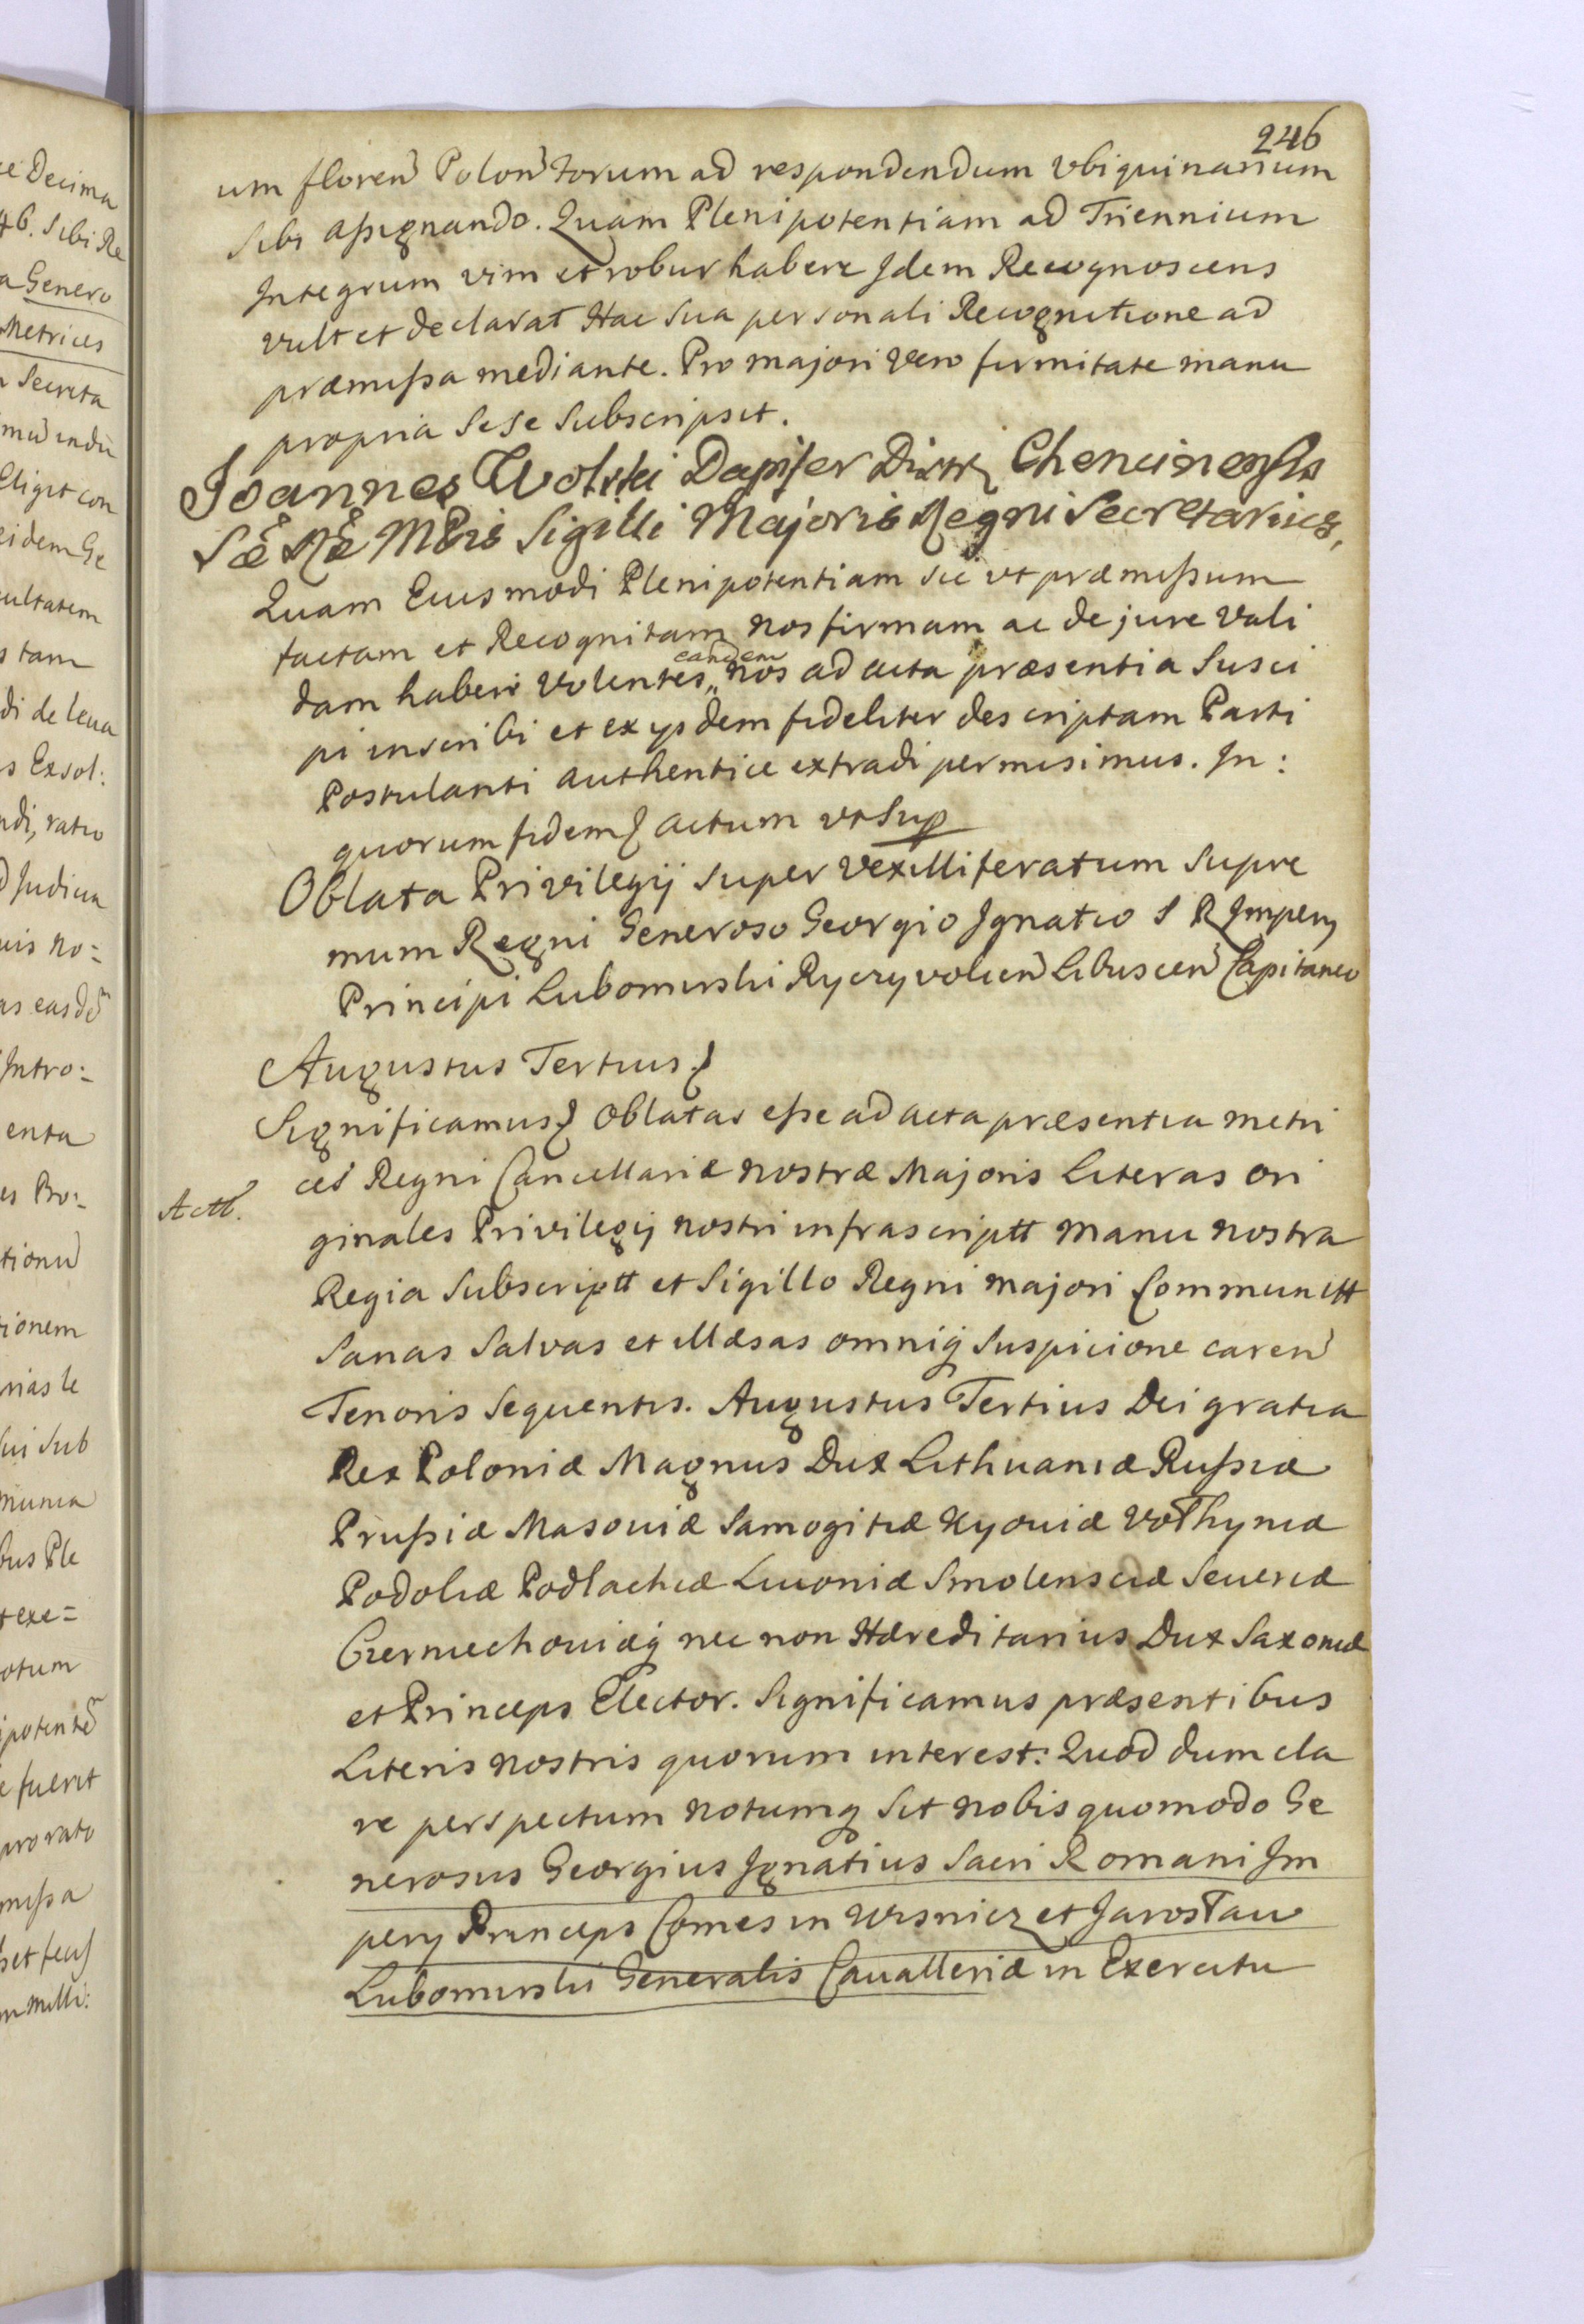 246
um floren Polon Forum ad respondendum Vbiquinarium
Sibi assignando. Quam Plenipotentiam ad Triennium
Integrum vim et robur habere Idem Recognoscens
vult et declarat Hac Sua personali Recognitione ad
præmissa mediante. Pro majori Vero firmitate manu
propria Sese Subscripsit.
Joannes Wolski Dapifer Chencinensis
Sæ Ræ Mtis Sigilli Majoris Regni Secretarius,
Quam Eiusmodi Plenipotentiam sic vt præmissum
factam et Recognitam nos firmam ac de jure Vali
eandem
dam haberi Volentes,, nos ad acta præsentia Susci
pi inscribi et ex ysdem fideliter descriptam Parti
Postulanti authentice extradi permisimus. In:
quorum fidem actum vt Sup
Oblata Privilegij Super Vexilliferatum Supre
mum Regni Generoso Georgio Ignatio S R Impery
Principi Lubomirski Ryczyvolien Libuscen Capitaneo
Augustus Tertius
Significamus Oblatas esse ad acta præsentia metri
ces Regni Cancellariæ nostræ Majoris Literas ori
Actt.
ginales Privilegij nostri infrascriptt manu nostra
Regia Subscriptt et Sigillo Regni majori Communitt
Sanas Salvas et illæsas omniq Suspicione caren
Tenoris Sequentis. Augustus Tertius Dei gratia
Rex Poloniæ Magnus Dux Lithuaniæ Russiæ
Prussiæ Masoviæ Samogitiæ Kyoviæ Vołhyniæ
Podoliæ Podlachiæ Livoniæ Smolensciæ Severiæ
Czerniechoviæq nec non Hæreditarius Dux Saxoniæ
et Princeps Elector. Significamus præsentibus
Literis nostris quorum interest: Quod dum cla
re perspectum notumq Sit nobis quomodo Ge
nerosus Georgius Ignatius Sacri Romani Im
pery Princeps Comes in Wisnicz et Jarosław
Lubomirski Generalis Cavalleriæ in Exercitu